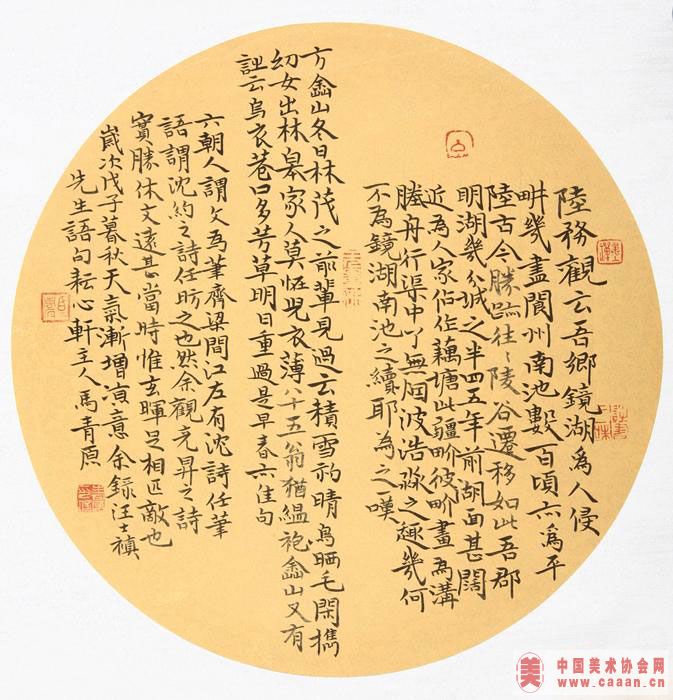 陸務觀云吾鄉鏡湖為人侵
畊幾盡閬州南池數百頃亦為平
陸古今勝跡往〻陵谷遷移如此吾郡
明湖幾分城之半四五年前湖面甚闊
近為人家佔作藕塘此疆畍彼畍畫為溝
塍舟行渠中了無囘波浩淼之趣幾何
不為鏡湖南池之續耶為之嘆
方嵞山冬日林茂之前輩見過云積雪初晴鳥晒毛閑攜
幼女出林皋家人莫恠兒衣薄八十五翁猶縕袍嵞山又有
云烏衣巷口多芳草明日重過是早春亦佳句
六朝人謂文為筆齊梁間江左有沈詩任筆
語謂沈約之詩任昉之也然余觀彥昇之詩
實勝休文遠甚當時惟玄暉足相匹敵也
歲次戊子暮秋天氣漸增涼意余錄汪士禛
先生語句耘心軒主人馬青原
美 中国美术协会网
www.caaan.cn